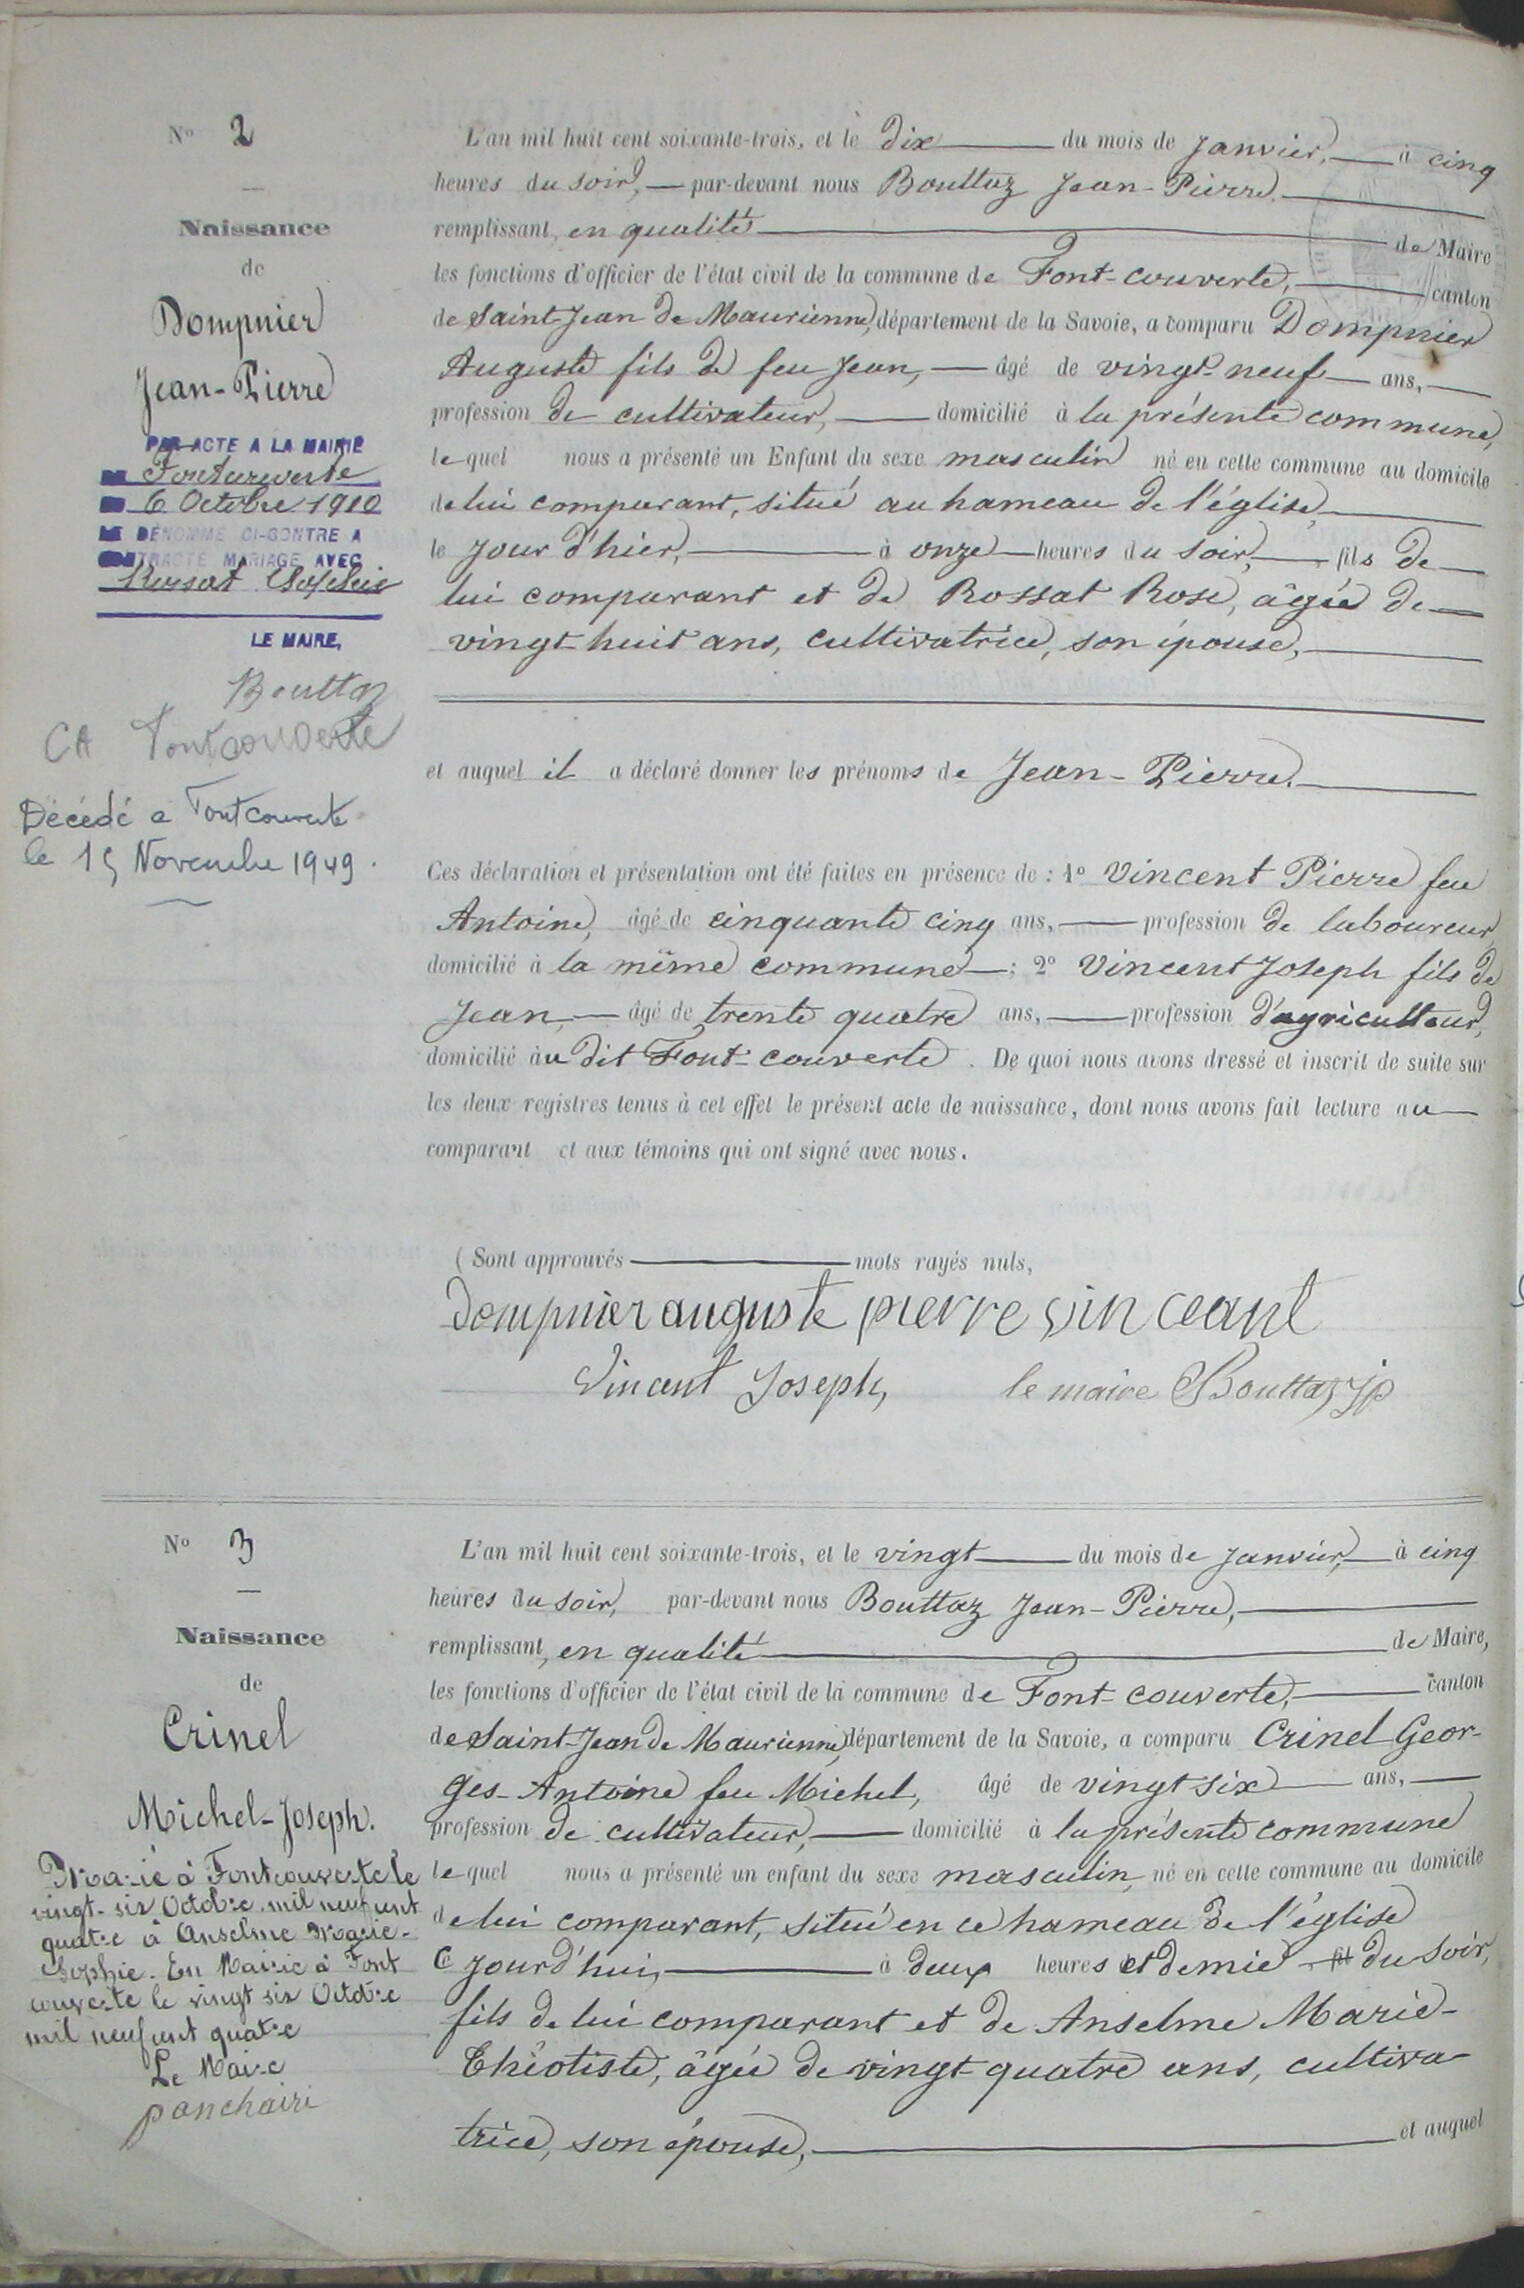 N° 2
Naissance
de
Dompnier
Jean-Pierre
PAR ACTE A LA MAIRIE
Fontcouverte
6 Octobre 1910
LE DÉNOMMÉ CI-CONTRE A
CONTRACTÉ MARIAGE AVEC
Rossat Sophie
LE MAIRE,
Bouttaz
CH Fontcouverte
Décédé a Fontcouverte
le 15 Novembre 1949.
L'an mil huit cent soixante-trois, et le dix du mois de Janvier, à cinq
heures du soir, par-devant nous Bouttaz Jean-Pierre.
remplissant, en qualité de Maire
les fonctions d'officier de l'état civil de la commune de Font-couverte, canton
de Saint-Jean de Maurienne, département de la Savoie, a comparu Dompnier
Auguste fils de feu Jean, âgé de vingt-neuf ans,
profession de cultivateur, domicilié à la présente commune,
lequel nous a présenté un Enfant du sexe masculin né en cette commune au domicile
de lui comparant, situé au hameau de l'église,
le jour d'hier, à onze heures du soir, fils de
lui comparant et de Rossat Rose, âgée de
vingt-huit ans, cultivatrice, son épouse,
et auquel il a déclaré donner les prénoms de Jean-Pierre.
Ces déclaration et présentation ont été faites en présence de : 1° Vincent Pierre feu
Antoine, âgé de cinquante cinq ans, profession de laboureur,
domicilié à la même commune ; 2° Vincent Joseph fils de
Jean, âgé de trente quatre ans, profession d'agriculteur,
domicilié àu dit Font-couverte. De quoi nous avons dressé et inscrit de suite sur
les deux registres tenus à cet effet le présent acte de naissance, dont nous avons fait lecture au
comparant et aux témoins qui ont signé avec nous.
(Sont approuvés mots rayés nuls,
dompnier auguste pierre vinceant
Vincent Joseph, le maire Bouttaz jp
N° 3
Naissance
de
Crinel
Michel-Joseph.
Marié à Fontcouverte le
vingt-six Octobre mil neuf cent
quatre à Anselme Marie-
Sophie. En Mairie à Font
couverte le vingt six Octobre
mil neuf cent quatre
Le Maire
panchairi
L'an mil huit cent soixante-trois, et le vingt du mois de Janvier, à cinq
heures du soir, par-devant nous Bouttaz Jean-Pierre,
remplissant, en qualité de Maire,
les fonctions d'officier de l'état civil de la commune de Font-couverte, canton
de Saint-Jean de Maurienne, département de la Savoie, a comparu Crinel Geor-
ges-Antoine feu Michel, âgé de vingt six ans,
profession de cultivateur, domicilié à la présente commune
lequel nous a présenté un enfant du sexe masculin, né en cette commune au domicile
de lui comparant, situé en ce hameau de l'église
Ce jourd'hui, à deux heures et demie du soir,
fils de lui comparant et de Anselme Marie-
Théotiste, âgée de vingt-quatre ans, cultiva-
trice, son épouse, et auquel